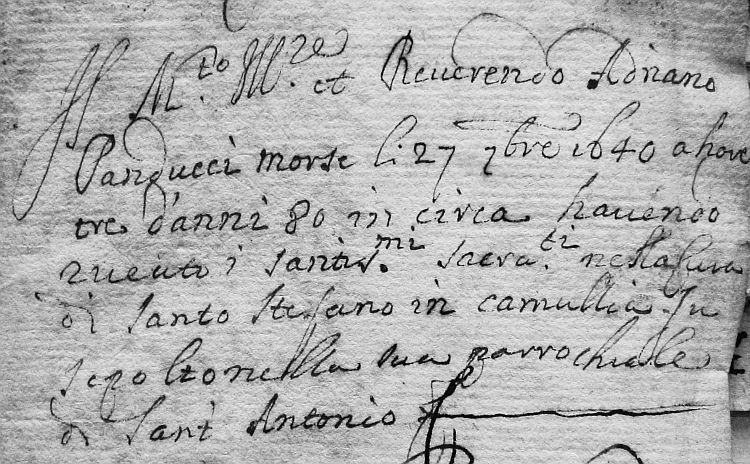 Il M.to Ill.re et Reverendo Adriano
Panducci morse li 27 7bre 1640 a hore
tre d'anni 80 in circa havendo
riceuto i santis.mi sacra.ti nella Cura
di Santo Stefano in camullia. fu
sepolto nella sua parrochiale
di Sant Antonio